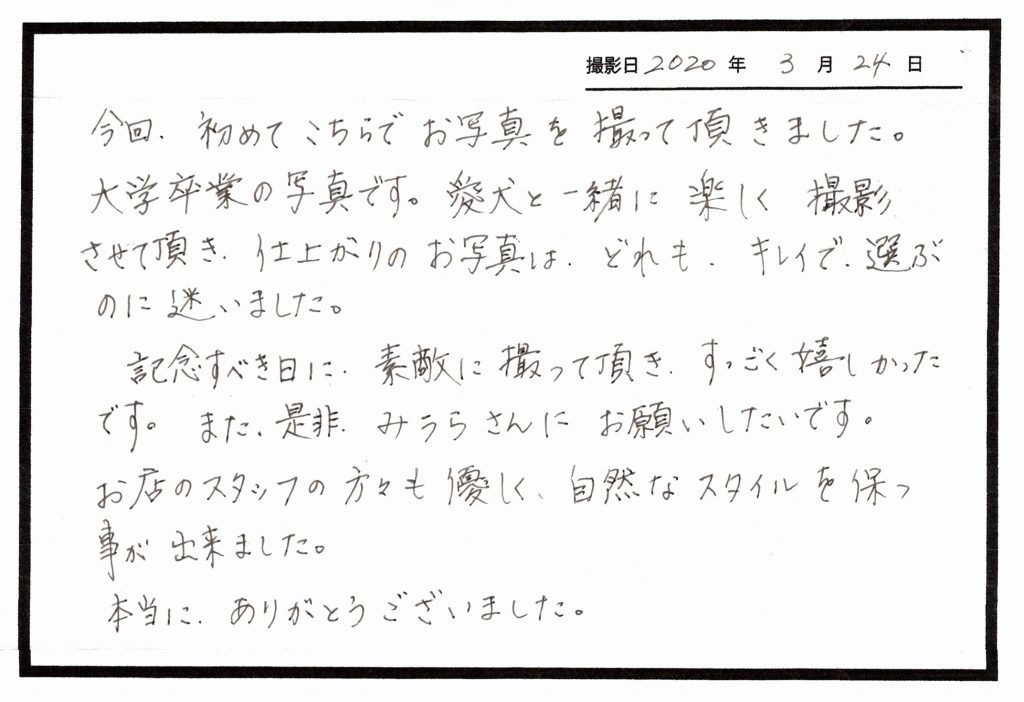 撮影日 2020 年 3 月 24 日
今回、初めてこちらでお写真を撮って頂きました。
大学卒業の写真です。愛犬と一緒に楽しく撮影
させて頂き、仕上がりのお写真は、どれも、キレイで、選ぶ
のに迷いました。
記念すべき日に、素敵に撮って頂き、すっごく嬉しかった
です。また、是非、みうらさんにお願いしたいです。
お店のスタッフの方々も優しく、自然なスタイルを保つ
事が出来ました。
本当に、ありがとうございました。